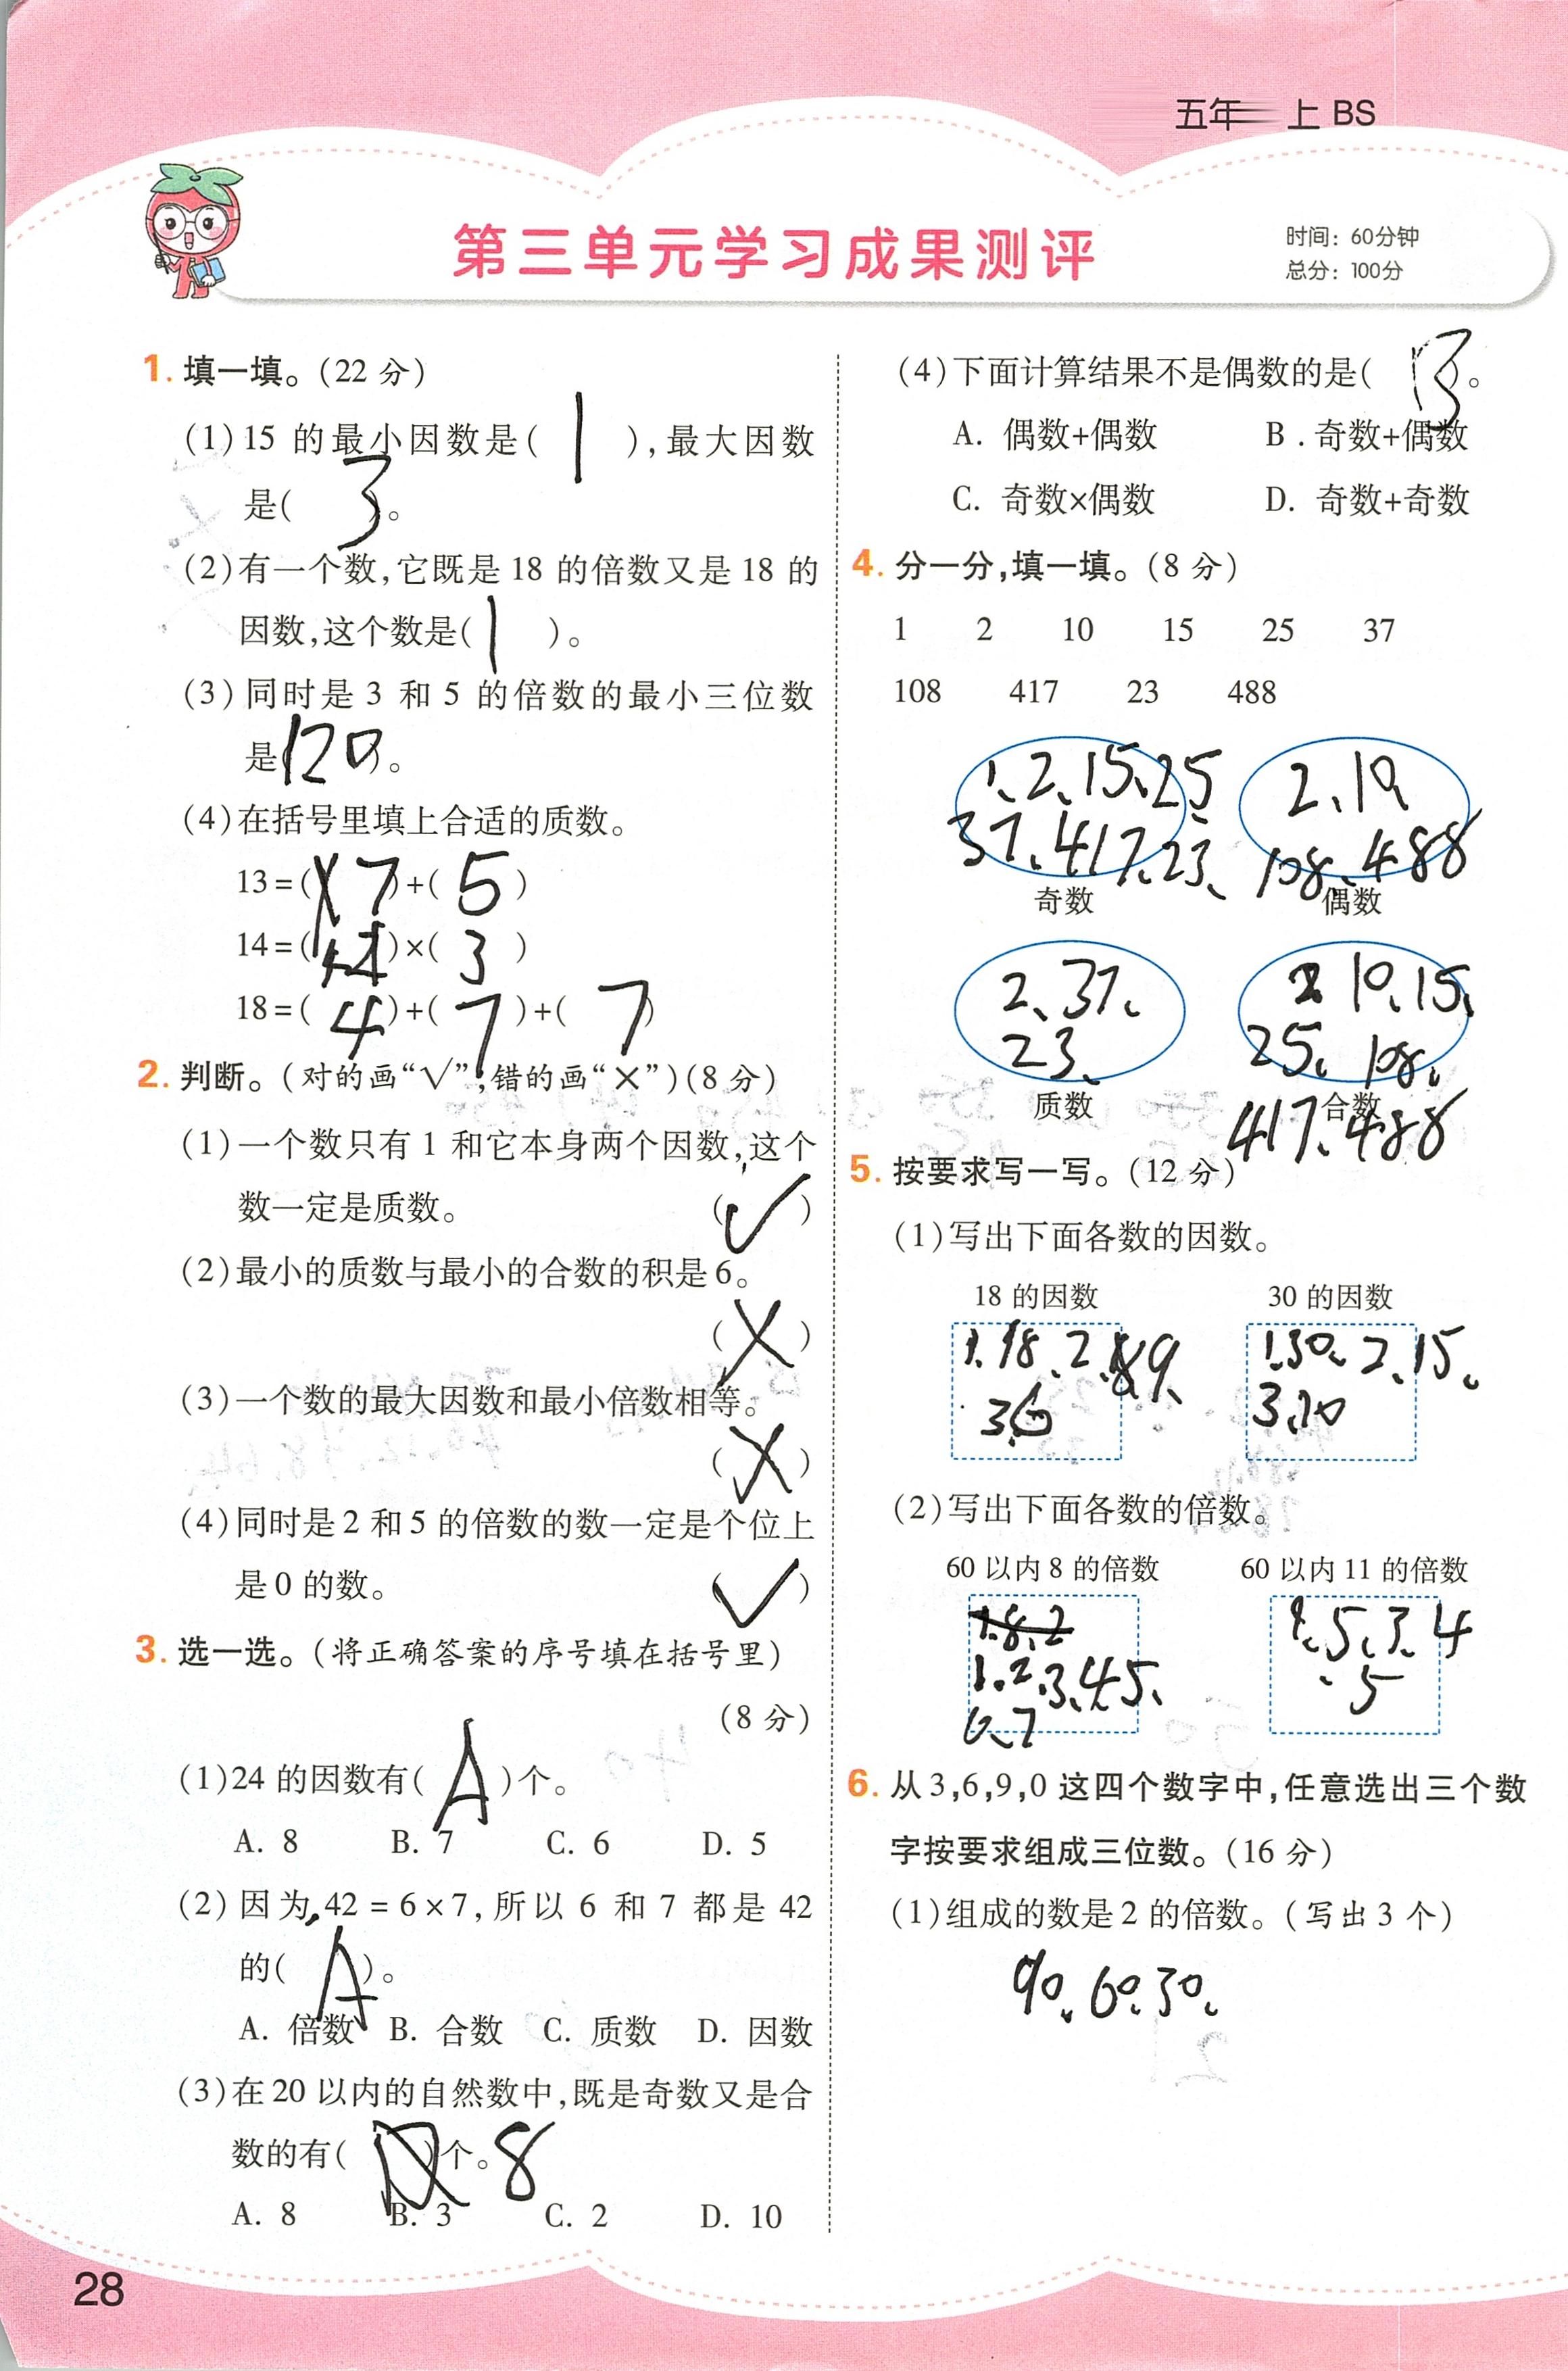 五年 上 BS
第三单元学习成果测评
时间：60分钟
总分：100分
1. 填一填。(22 分)
(1)15 的最小因数是( 1 ),最大因数
是( 3 )。
(2)有一个数,它既是 18 的倍数又是 18 的
因数,这个数是( 1 )。
(3)同时是 3 和 5 的倍数的最小三位数
是(120)。
(4)在括号里填上合适的质数。
13=( 7 )+( 5 )
14=( )×( 3 )
18=( 4 )+( 7 )+( 7 )
2. 判断。(对的画“√”,错的画“×”)(8 分)
(1)一个数只有 1 和它本身两个因数,这个
数一定是质数。 (√)
(2)最小的质数与最小的合数的积是6。
(×)
(3)一个数的最大因数和最小倍数相等。
(×)
(4)同时是2和5的倍数的数一定是个位上
是0的数。 (√)
3. 选一选。(将正确答案的序号填在括号里)
(8 分)
(1)24 的因数有( A )个。
A. 8 B. 7 C. 6 D. 5
(2)因为 42 = 6×7,所以 6 和 7 都是 42
的( A )。
A. 倍数 B. 合数 C. 质数 D. 因数
(3)在 20 以内的自然数中,既是奇数又是合
数的有( )个。8
A. 8 B. 3 C. 2 D. 10
28
(4)下面计算结果不是偶数的是( B )。
A. 偶数+偶数 B. 奇数+偶数
C. 奇数×偶数 D. 奇数+奇数
4. 分一分,填一填。(8 分)
1 2 10 15 25 37
108 417 23 488
1、2、15、25 2、10
37、417、23、 108、488
奇数 偶数
2、37、 10、15、
23、 25、108、
质数 合数
417、488
5. 按要求写一写。(12 分)
(1)写出下面各数的因数。
18 的因数 30 的因数
1、18、2、9、 1、30、2、15、
3、6 3、10
(2)写出下面各数的倍数。
60 以内 8 的倍数 60 以内 11 的倍数
1.8.2 5、3、4
1、2、3、4 5、 、5
6、7
6. 从3,6,9,0 这四个数字中,任意选出三个数
字按要求组成三位数。(16 分)
(1)组成的数是2的倍数。(写出3个)
90、60、30、